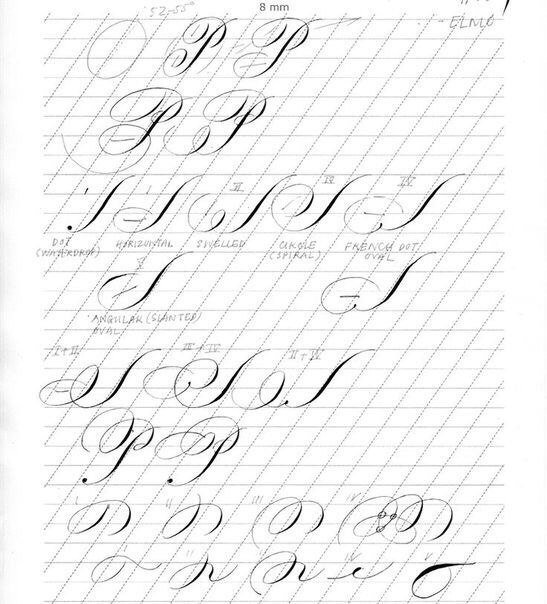 8 mm
52-55°
ELMO
P P
P P
I II III IV
DOT HORIZONTAL SWELLED CIRCLE FRENCH DOT
(WATERDROP) (SPIRAL) OVAL
V
ANGULAR (SLANTED)
OVAL
I+II III+IV II+IV
P P
I II III IV
II III IV V